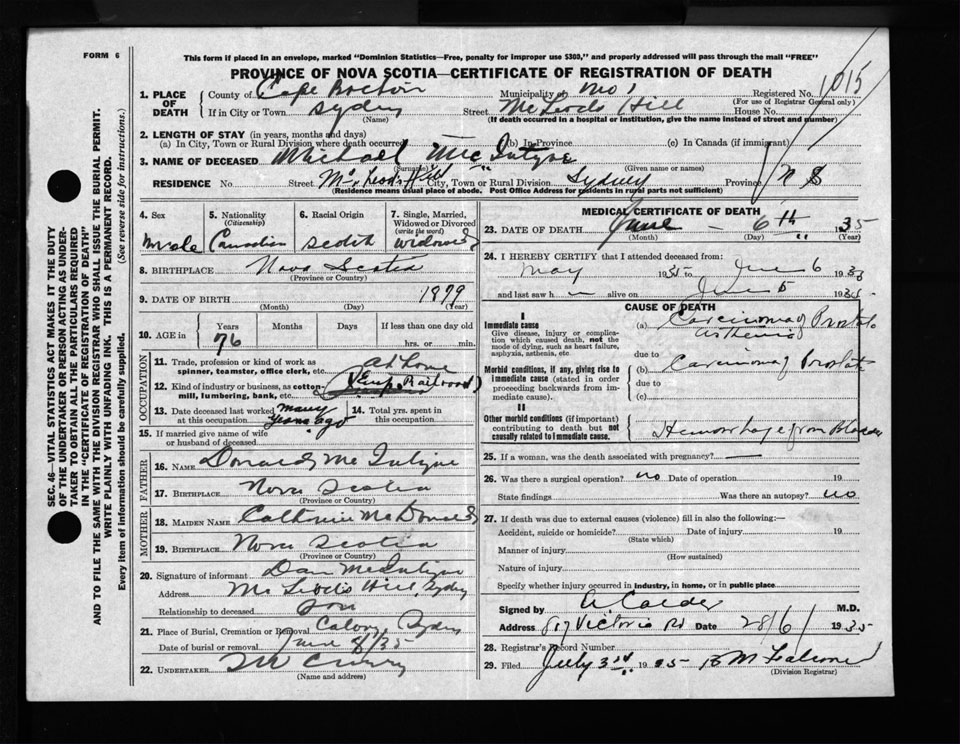 FORM 6
This form if placed in an envelope, marked "Dominion Statistics—Free, penalty for improper use $300," and properly addressed will pass through the mail "FREE"
PROVINCE OF NOVA SCOTIA—CERTIFICATE OF REGISTRATION OF DEATH
1. PLACE OF DEATH
County of Cape Breton Municipality of No 1 Registered No. 1015
(For use of Registrar General only)
If in City or Town Sydney Street McLeods Hill House No.
(Name) (If death occurred in a hospital or institution, give the name instead of street and number)
2. LENGTH OF STAY (in years, months and days)
(a) In City, Town or Rural Division where death occurred (b) In Province (c) In Canada (if immigrant)
3. NAME OF DECEASED Michael McIntyre
(Surname) (Given name or names)
RESIDENCE No Street McLeods Hill City, Town or Rural Division Sydney Province N S
(Residence means usual place of abode. Post Office Address for residents in rural parts not sufficient)
4. Sex
Male
5. Nationality
(Citizenship)
Canadian
6. Racial Origin
Scotch
7. Single, Married, Widowed or Divorced
(write the word)
Widowed
8. BIRTHPLACE Nova Scotia
(Province or Country)
9. DATE OF BIRTH 1879
(Month) (Day) (Year)
10. AGE in
Years Months Days If less than one day old
76 hrs. or min.
OCCUPATION
11. Trade, profession or kind of work as spinner, teamster, office clerk, etc. at Home
12. Kind of industry or business, as cotton-mill, lumbering, bank, etc. Railroad
13. Date deceased last worked at this occupation many years ago
14. Total yrs. spent in this occupation
15. If married give name of wife or husband of deceased
FATHER
16. NAME Donald McIntyre
17. BIRTHPLACE Nova Scotia
(Province or Country)
MOTHER
18. MAIDEN NAME Catherine McDonald
19. BIRTHPLACE Nova Scotia
(Province or Country)
20. Signature of informant Dan McIntyre
Address McLeods Hill, Sydney
Relationship to deceased Son
21. Place of Burial, Cremation or Removal Calvary, Sydney
Date of burial or removal June 8/35
22. UNDERTAKER
(Name and address)
MEDICAL CERTIFICATE OF DEATH
23. DATE OF DEATH June 6th 1935
(Month) (Day) (Year)
24. I HEREBY CERTIFY that I attended deceased from:
May 1935 to June 6 1935
and last saw h alive on June 5 1935
CAUSE OF DEATH
I
Immediate cause
Give disease, injury or complication which caused death, not the mode of dying, such as heart failure, asphyxia, asthenia, etc
(a) Carcinoma of Prostate
asthenia
due to
Morbid conditions, if any, giving rise to immediate cause (stated in order proceeding backwards from immediate cause).
(b) Carcinoma of Prostate
due to
(c)
II
Other morbid conditions (if important) contributing to death but not causally related to immediate cause.
Hemorrhage from Bladder
25. If a woman, was the death associated with pregnancy? —
26. Was there a surgical operation? no Date of operation 19
State findings Was there an autopsy? no
27. If death was due to external causes (violence) fill in also the following:—
Accident, suicide or homicide? Date of injury 19
(State which)
Manner of injury
(How sustained)
Nature of injury
Specify whether injury occurred in industry, in home, or in public place
Signed by A. Calder M.D.
Address 817 Victoria Rd Date 28/6/ 1935
28. Registrar's Record Number
29. Filed July 3rd 1935
(Division Registrar)
SEC. 46—VITAL STATISTICS ACT MAKES IT THE DUTY
OF THE UNDERTAKER OR PERSON ACTING AS UNDER-
TAKER TO OBTAIN ALL THE PARTICULARS REQUIRED
IN THE "CERTIFICATE OF REGISTRATION OF DEATH"
AND TO FILE THE SAME WITH THE DIVISION REGISTRAR WHO SHALL ISSUE THE BURIAL PERMIT.
WRITE PLAINLY WITH UNFADING INK. THIS IS A PERMANENT RECORD.
Every item of information should be carefully supplied. (See reverse side for instructions.)